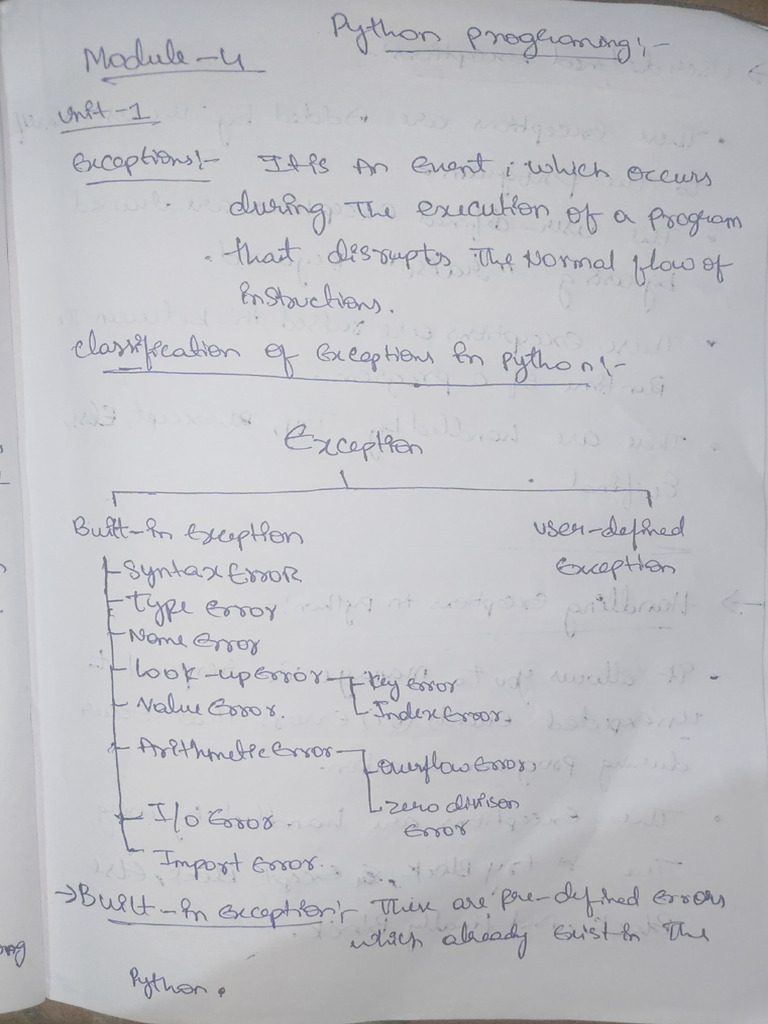 Python programing:-
Module-4
Unit-1
Exceptions:- It is An Event; which occurs
during, The execution of a program
that disrupts The Normal flow of
Instructions.
classification of exceptions in python:-
Exception
Built-in exception
user-defined
exception
Syntax Error
Type error
Name Error
Look-up Error
Key error
Index Error.
Value Error.
Arithmetic Error
overflow Error
zero divison
error
I/o Error
Import Error.
→ Built-in exception:- These are pre-defined errors
which already exist in The
Python.